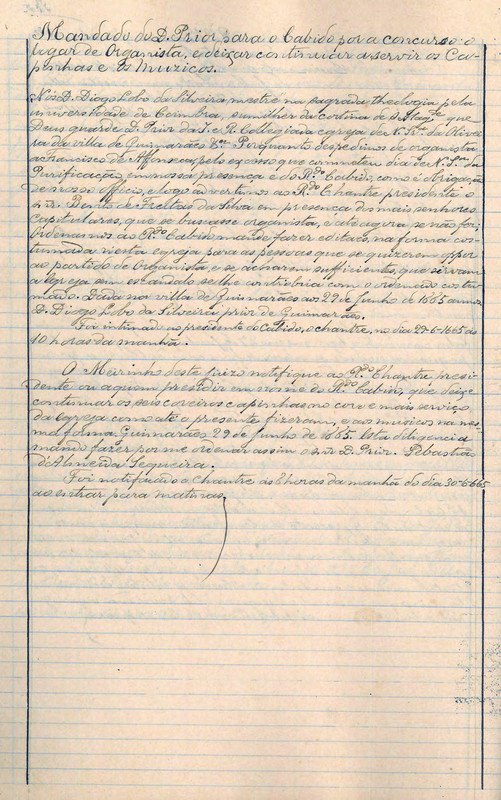 Mandado do D. Prior para o Cabido por a concurso o
lugar de Organista, e deixar continuar a servir os Ca-
pinhas e os Muzicos.
Nós D. Diogo Lobo da Silveira, mestre na sagrada theologia pela
universidade de Coimbra, sumilher da cortina de S. Magte. que
Deus guarde, D. Prior da I. e R. Collegiada egreja de N. Srª. da Olivei
ra da villa de Guimarães &ª. Porquanto despedimos de organista
a Francisco de Affonseca, pelo excesso que cometteu dia de N. Sª. da
Purificação, em nossa presença e do Rdo. Cabido, como é obrigação
de nosso officio, e logo advertimos ao Rdo. Chantre presidente o
Lir. Bento de Freitas da Silva em presença dos mais senhores
capitulares, que se buscasse organista, e até agora se não fez;
Ordenamos ao Rdo. Cabido mande fazer editaes, na forma cos-
tumada nesta egreja para as pessoas que se quizerem oppor
ao partido de Organista, e se acharem sufficientes, que sirvam
a egreja sem escandalo selhe contribria com o ordenado costu-
mado. Dada na villa de Guimarães aos 22 de Junho de 1665 annos
D. Diogo Lobo da Silveira prior de Guimarães.
Foi intimado ao presidente do Cabido, o chantre, no dia 27-6-1665 ás
10 horas da manhã.
O Meirinho deste juizo notifique ao Rdo. Chantre presi-
dente ou a quem presidir em nome do Rdo. Cabido, que deixe
continuar os seis coreiros capinhas no coro e mais serviço
da egreja como até o presente fizeram, e aos musicos na mes-
ma forma. Guimarães 29 de Junho de 1665. Esta diligencia
mando fazer por me ordenar assim o snr. D. Prior. Sebastião
d'Almeida Sequeira.
Foi notificado o chantre ás 6 horas da manhã do dia 30-6-665
ao entrar para matinas.